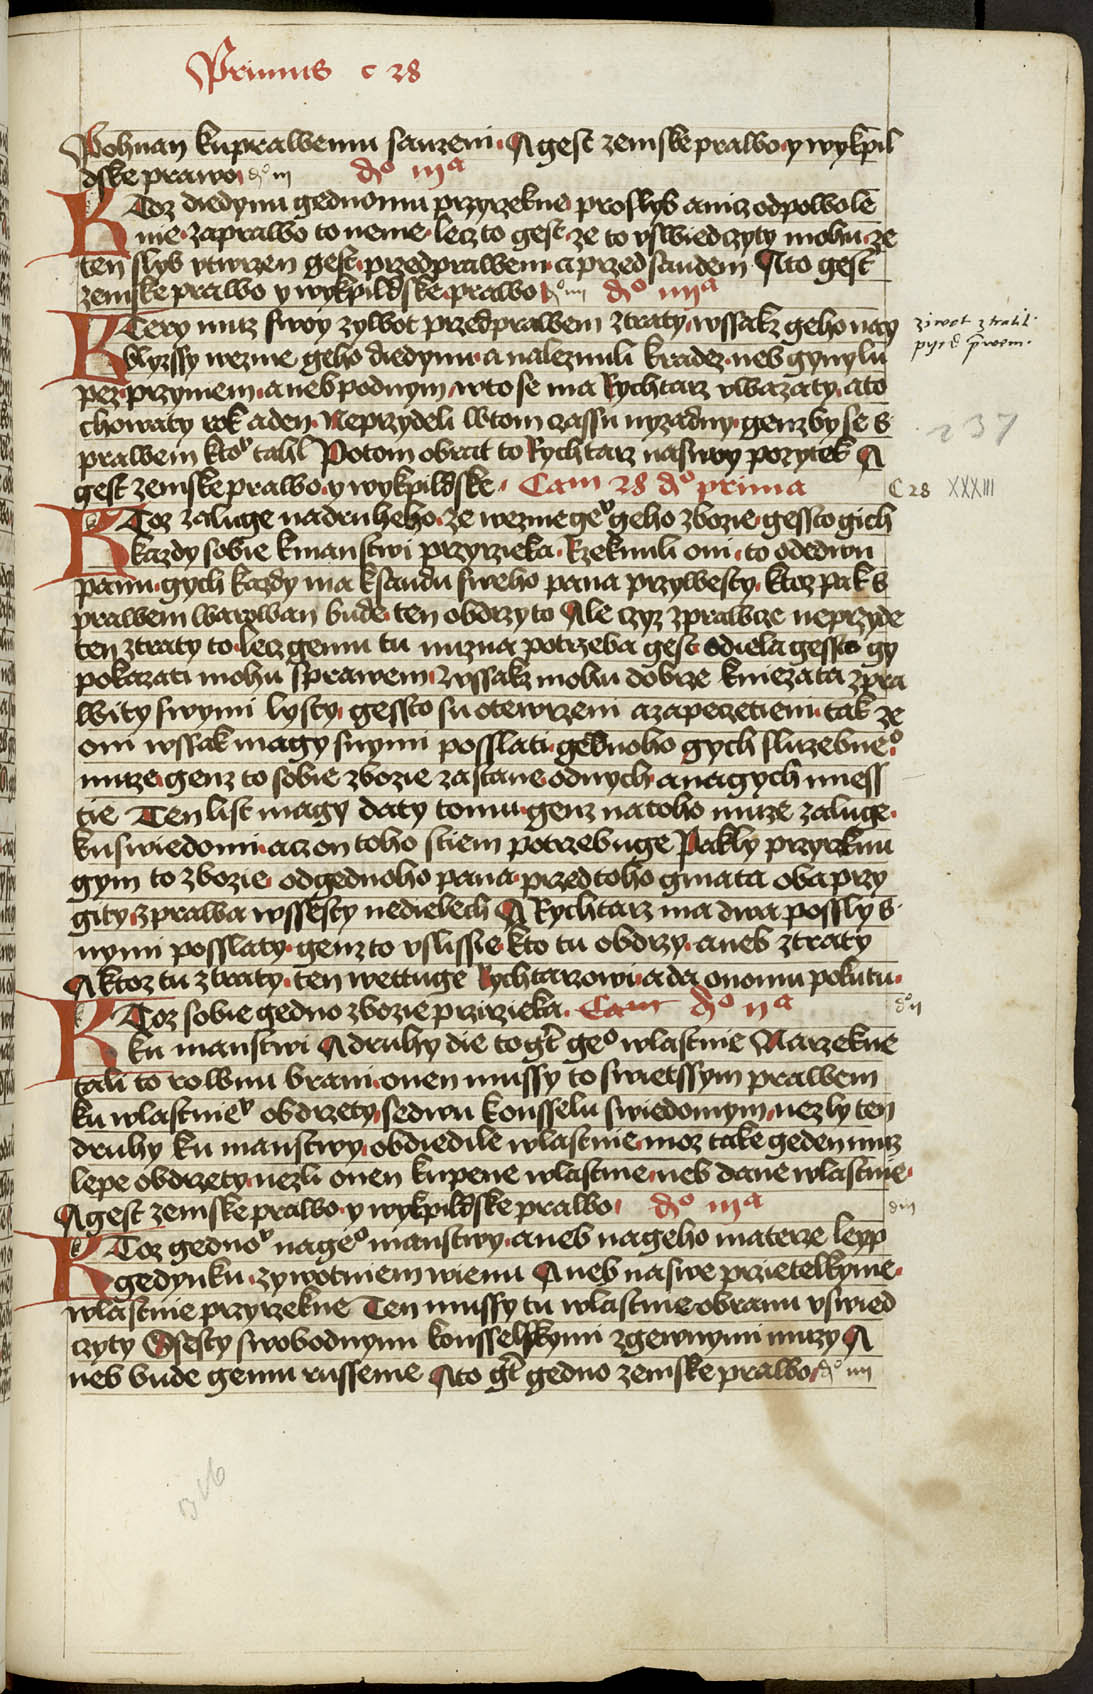 Primus c 28
Pohnan kuprawemu sauzeni A gest zemske prawo y wykpil
dske prawo dͦ iii dͦ iiiᵃ
KToz diedynu gednomu przyrzekne proslyb a nicz odpowole
nie zaprawo to neme lecz to gest ze to vswiedczyty mohu ze
ten slyb vtwrzen gest przedprawem a przed saudem Ato gest
zemske prawo y wykpildske prawo dͦ iiii dͦ iiiiᵃ
KTery muz swoy zywot przedprawem ztraty wssak geho nay
blyzssy wezme geho diedynu a nalezmuli kradez neb gynylu
pez przymem aneb podnym wto se ma Rychtarz vwazaty ato
chowaty rok aden Neprzydeli wtom czassu nyzadny genz by se s
prawem ktoᵛ tahl Potom obrat to Rychtarz naswoy pozytek A
gest zemske prawo y wykpildske Cam 28 dͦ prima
KToz zaluge nadruheho ze wezme geᵛ geho zbozie gessto gich
kazdy sobie kmanstwi przyrzieka Rzeknuli oni to odedwu
panu gych kazdy ma ksaudu sweho pana przywesty ktoz pak s
prawem warowan bude ten obdrzy to Ale czyz zprawcze neprzyde
ten ztraty to lecz gemu tu nuzna potrzeba gest odiela gessto gy
pokazati mohu sprawem Wssak mohu dobrze kniezata zpra
wity swymi lysty gessto su otewrzeni azapeczetieni tak ze
oni wssak magy swymi posslati gednoho gych sluzebneͦ
muze genz to sobie zbozie zastane odnych anagych miess
tie Ten list magy daty tomu genz natoho muze zaluge
kuswiedomi acz on toho stiem potrzebuge Pakly przyrknu
gym to zbozie odgednoho pana przed toho gmata oba przy
gity zprawa wssesty nedielech A Rychtarz ma dwa possly s
nymi posslaty genz to vslissie kto tu obdrzy aneb ztraty
A ktoz tu ztraty ten wettuge Rychtarzowi a da onomu pokutu
KToz sobie gedno zbozie przirzieka Cam dͦ iiᵃ
ku manstwi A druhy die to gt̄ geͦ wlastnie Narzekne
tali to rownu brani onen mussy to swietssym prawem
ku wlastnieᵛ obdrzety sedwu konsselu swiedomym nezly ten
druhy ku manstwy obdiedile wlastnie moz take geden muz
lepe obdrzety nezli onen kupene wlastnie neb dane wlastnie
A gest zemske prawo y wykpildske prawo dͦ iiiᵃ
KToz gednoᵛ nageͦ manstwy aneb nageho materze leyp
gedynku zywotniem wienu A neb naswe przietelkyme
wlastnie przyrzekne Ten mussy tu wlastnie obranu vswied
czyty Osesty swobodnymi konsselskymi zgewnymi muzy A
neb bude gemu russenie Ato gt̄ gedno zemske prawo dͦ iiii
ziwot ztratil
przed p̄wem
237
C 28 XXXIII
dͦ ii
d iii